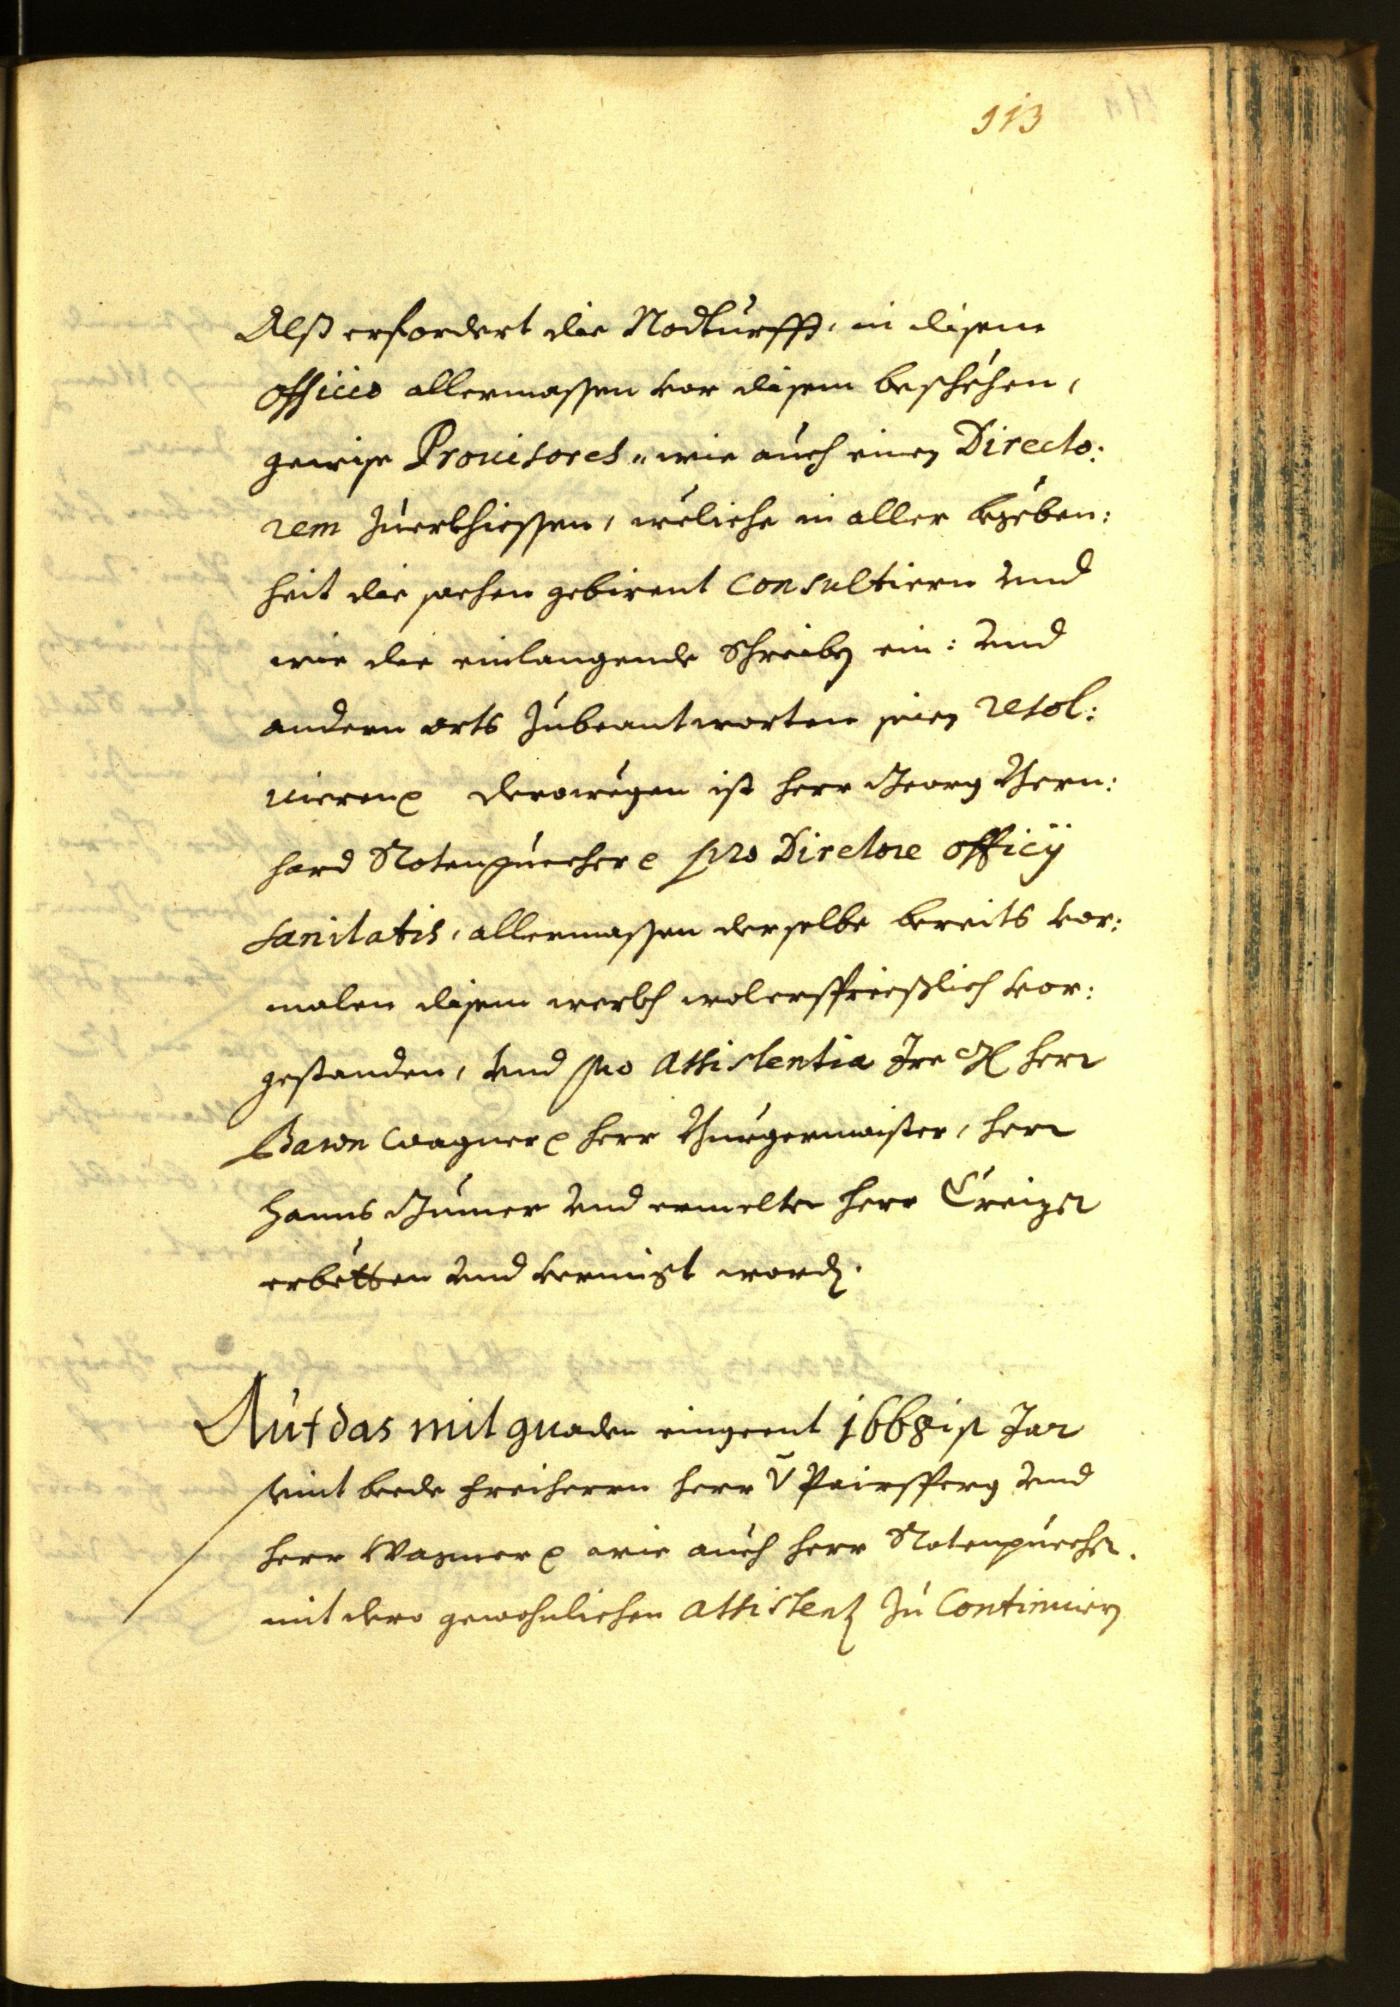 113
Alß erfordert die Nodturfft, in disem
officio allermassen vor disem beschéhen,
gewise Prouisores, wie auch einen Directo:
rem zuerkhiessen, wéliche in aller begében:
heit die sachen gebirent Consultiern vnd
wie die einlangende Schreiben ein: vnd
andern orts zubeantworten seien resol:
uieren derowégen ist herr Georg Bern:
hard Rotenpuecher pro Directore officij
sanitatis, allermassen derselbe bereits vor:
malen disem werkh wolersprießlich vor:
gestanden, vnd pro Assistentia Ire herr
Baron Wagner herr Burgermaister, herr
Hanns Gumer vnd ermelter herr Creizer
erbetten vnd vermigt worden.
Auf das mit gnaden eingeent 1668ist Jar
seint beede Freiherrn herr v Payrsperg vnd
herr Wagner wie auch herr Rotenpuecher.
mit dero gewohnlichen Assistenz zu Continuiern